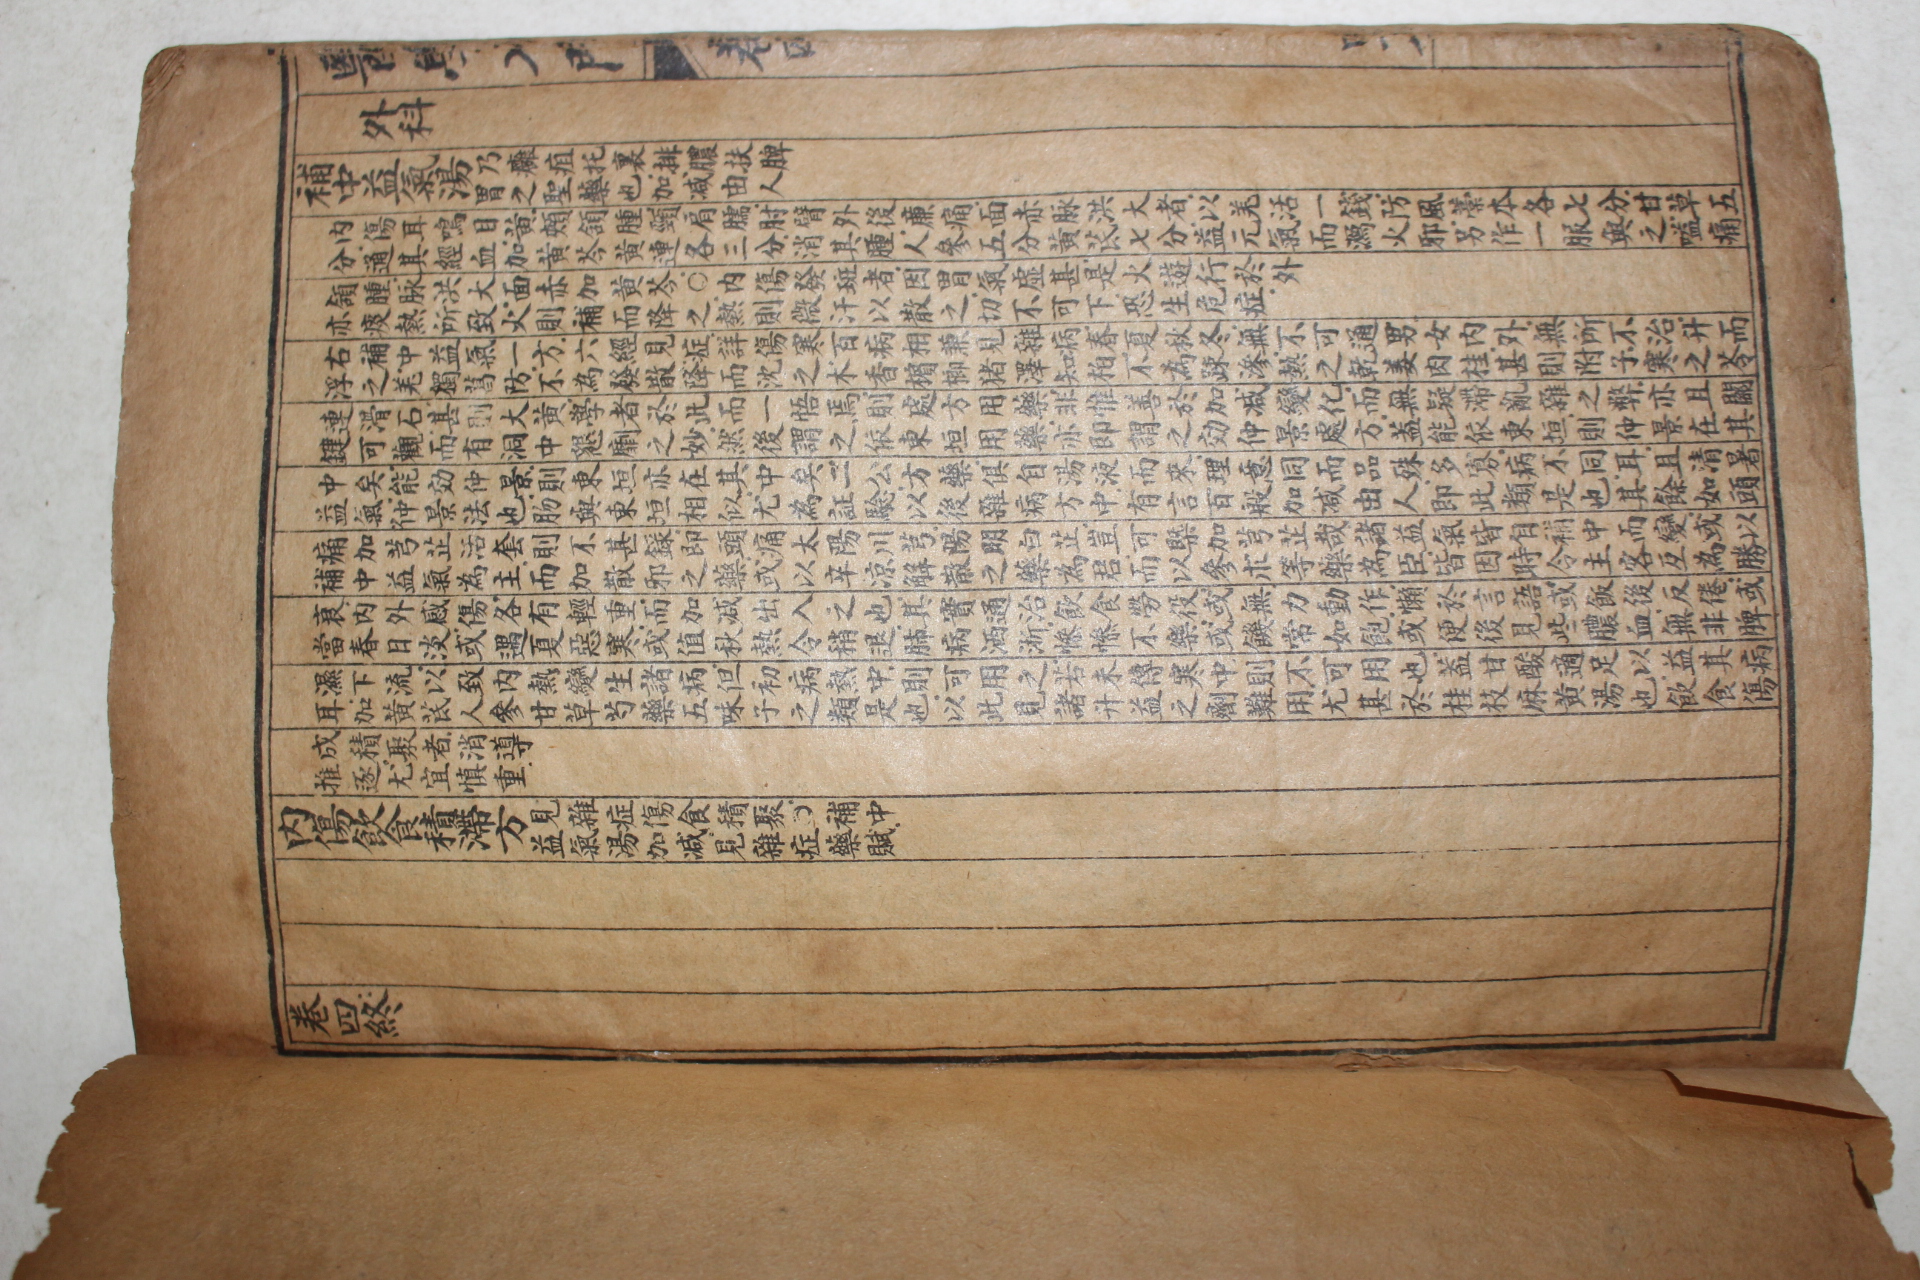 醫學入門 卷四
外科
補中益氣湯
乃癰疽托裏排膿扶脾
胃之聖藥也加減由人
內傷耳鳴目黃頰頷腫頸肩臑肘臂外後廉痛面赤脉洪大者以羌活一錢防風藁本各七分甘草五
分通其經血加黃芩黃連各三分消其腫人參五分黃芪七分益元氣而瀉火邪另作一服與之嗌痛
頷腫脉洪大面赤加黃芩○內傷發斑者因胃氣虛甚是火遊行於外
亦痰熱所致火則補而降之熱則微汗以散之切不可下恐生危症
右補中益氣一方六經見症詳傷寒百病相兼見雜病春夏秋冬無不可通男女內外無所不治升而
浮之羌獨葛防不為發散降而沈之木香檳榔猪澤知柏不為疎滲熱之乾姜肉桂甚則附子寒之苓
連滑石甚則大黃學者於此而一悟焉則處方用藥非惟善於加減變化而無疑滯亂雜之弊亦且關
鍵可觀而有洞中懇劘之妙然後謂之依東垣用藥亦即謂之効仲景處方盖能依東垣則仲景在其
中矣能効仲景則東垣亦在其中矣二公方藥俱自湯液而來理意同而品殊多寡病不同耳且清暑
益氣仲景法也肠與東垣相似尤為証驗以後雜病方中有言百般加減由人即此類是也其餘如頭
痛加芎芷活套則不甚錄即頭痛太陽川芎陽明白芷豈可槩加芎芷哉諸益氣皆自補中而變或以
補中益氣為主而加散邪之藥或以辛凉解散之藥為君而以參朮等藥為臣皆因時令主客互為勝
衰內外感傷各有輕重而加減出入之也其實通治飲食勞役或無力動作懶於言語或飯後反倦或
當春日淡或遇夏惡寒或值秋熱令稍退肺病洒淅慘慘不樂或饑常如飽或便後見些膿血無非脾
濕下流以致內熱變生諸病但初病熱中則可用之若未傳寒中則不可用也盖甘酸適足以益其病
耳加黃芪人參甘草芍藥五味子之類是也以此見諸升益之劑難用尤甚於桂枝麻黃湯也飲食傷
成積聚者消導
推逐尤宜慎重
內傷飲食積滯方
見雜症傷食積聚○補中
益氣湯加減見雜症藥賦
卷四終